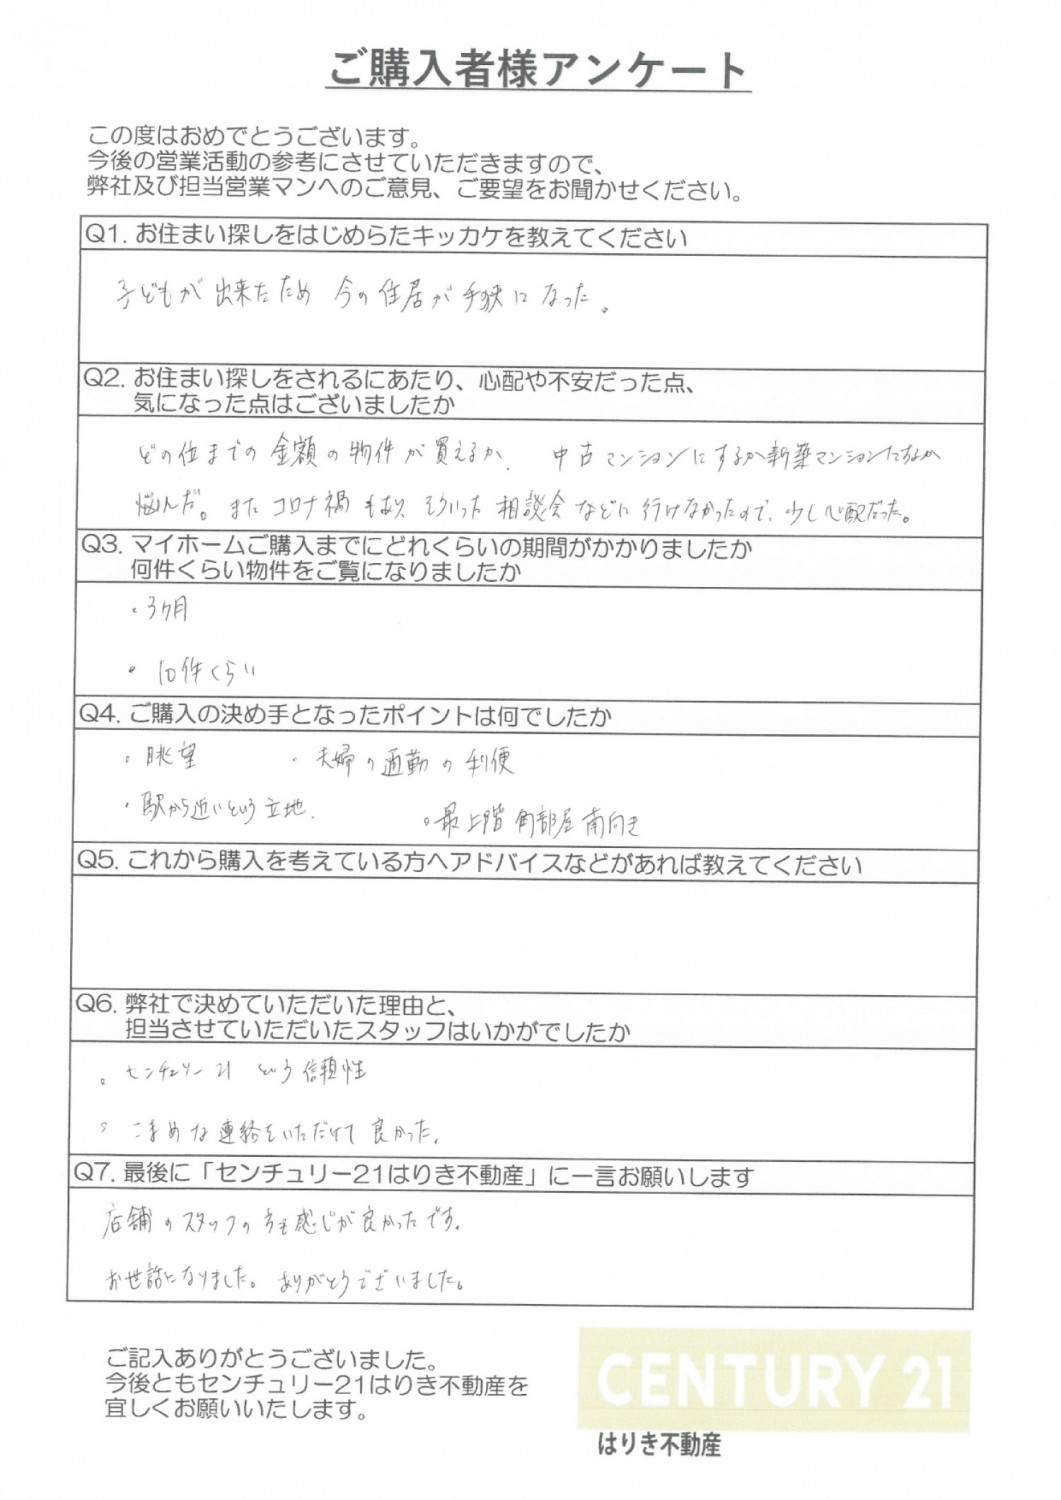 ご購入者様アンケート
この度はおめでとうございます。
今後の営業活動の参考にさせていただきますので、
弊社及び担当営業マンへのご意見、ご要望をお聞かせください。
Q1. お住まい探しをはじめらたキッカケを教えてください
子どもが出来たため 今の住居が手狭になった。
Q2. お住まい探しをされるにあたり、心配や不安だった点、
気になった点はございましたか
どの位までの金額の物件が買えるか、 中古マンションにするか新築マンションにするか
悩んだ。また コロナ禍もあり、そういった相談会などに行けなかったので、少し心配だった。
Q3. マイホームご購入までにどれくらいの期間がかかりましたか
何件くらい物件をご覧になりましたか
・3ヶ月
・10件くらい
Q4. ご購入の決め手となったポイントは何でしたか
・眺望 ・夫婦の通勤の利便
・駅から近いという立地. ・最上階角部屋南向き
Q5. これから購入を考えている方へアドバイスなどがあれば教えてください
Q6. 弊社で決めていただいた理由と、
担当させていただいたスタッフはいかがでしたか
・センチュリー21 という信頼性
・こまめな連絡をいただけて良かった。
Q7. 最後に「センチュリー21はりき不動産」に一言お願いします
店舗のスタッフの方も感じが良かったです。
お世話になりました。ありがとうございました。
ご記入ありがとうございました。
今後ともセンチュリー21はりき不動産を
宜しくお願いいたします。
CENTURY 21
はりき不動産